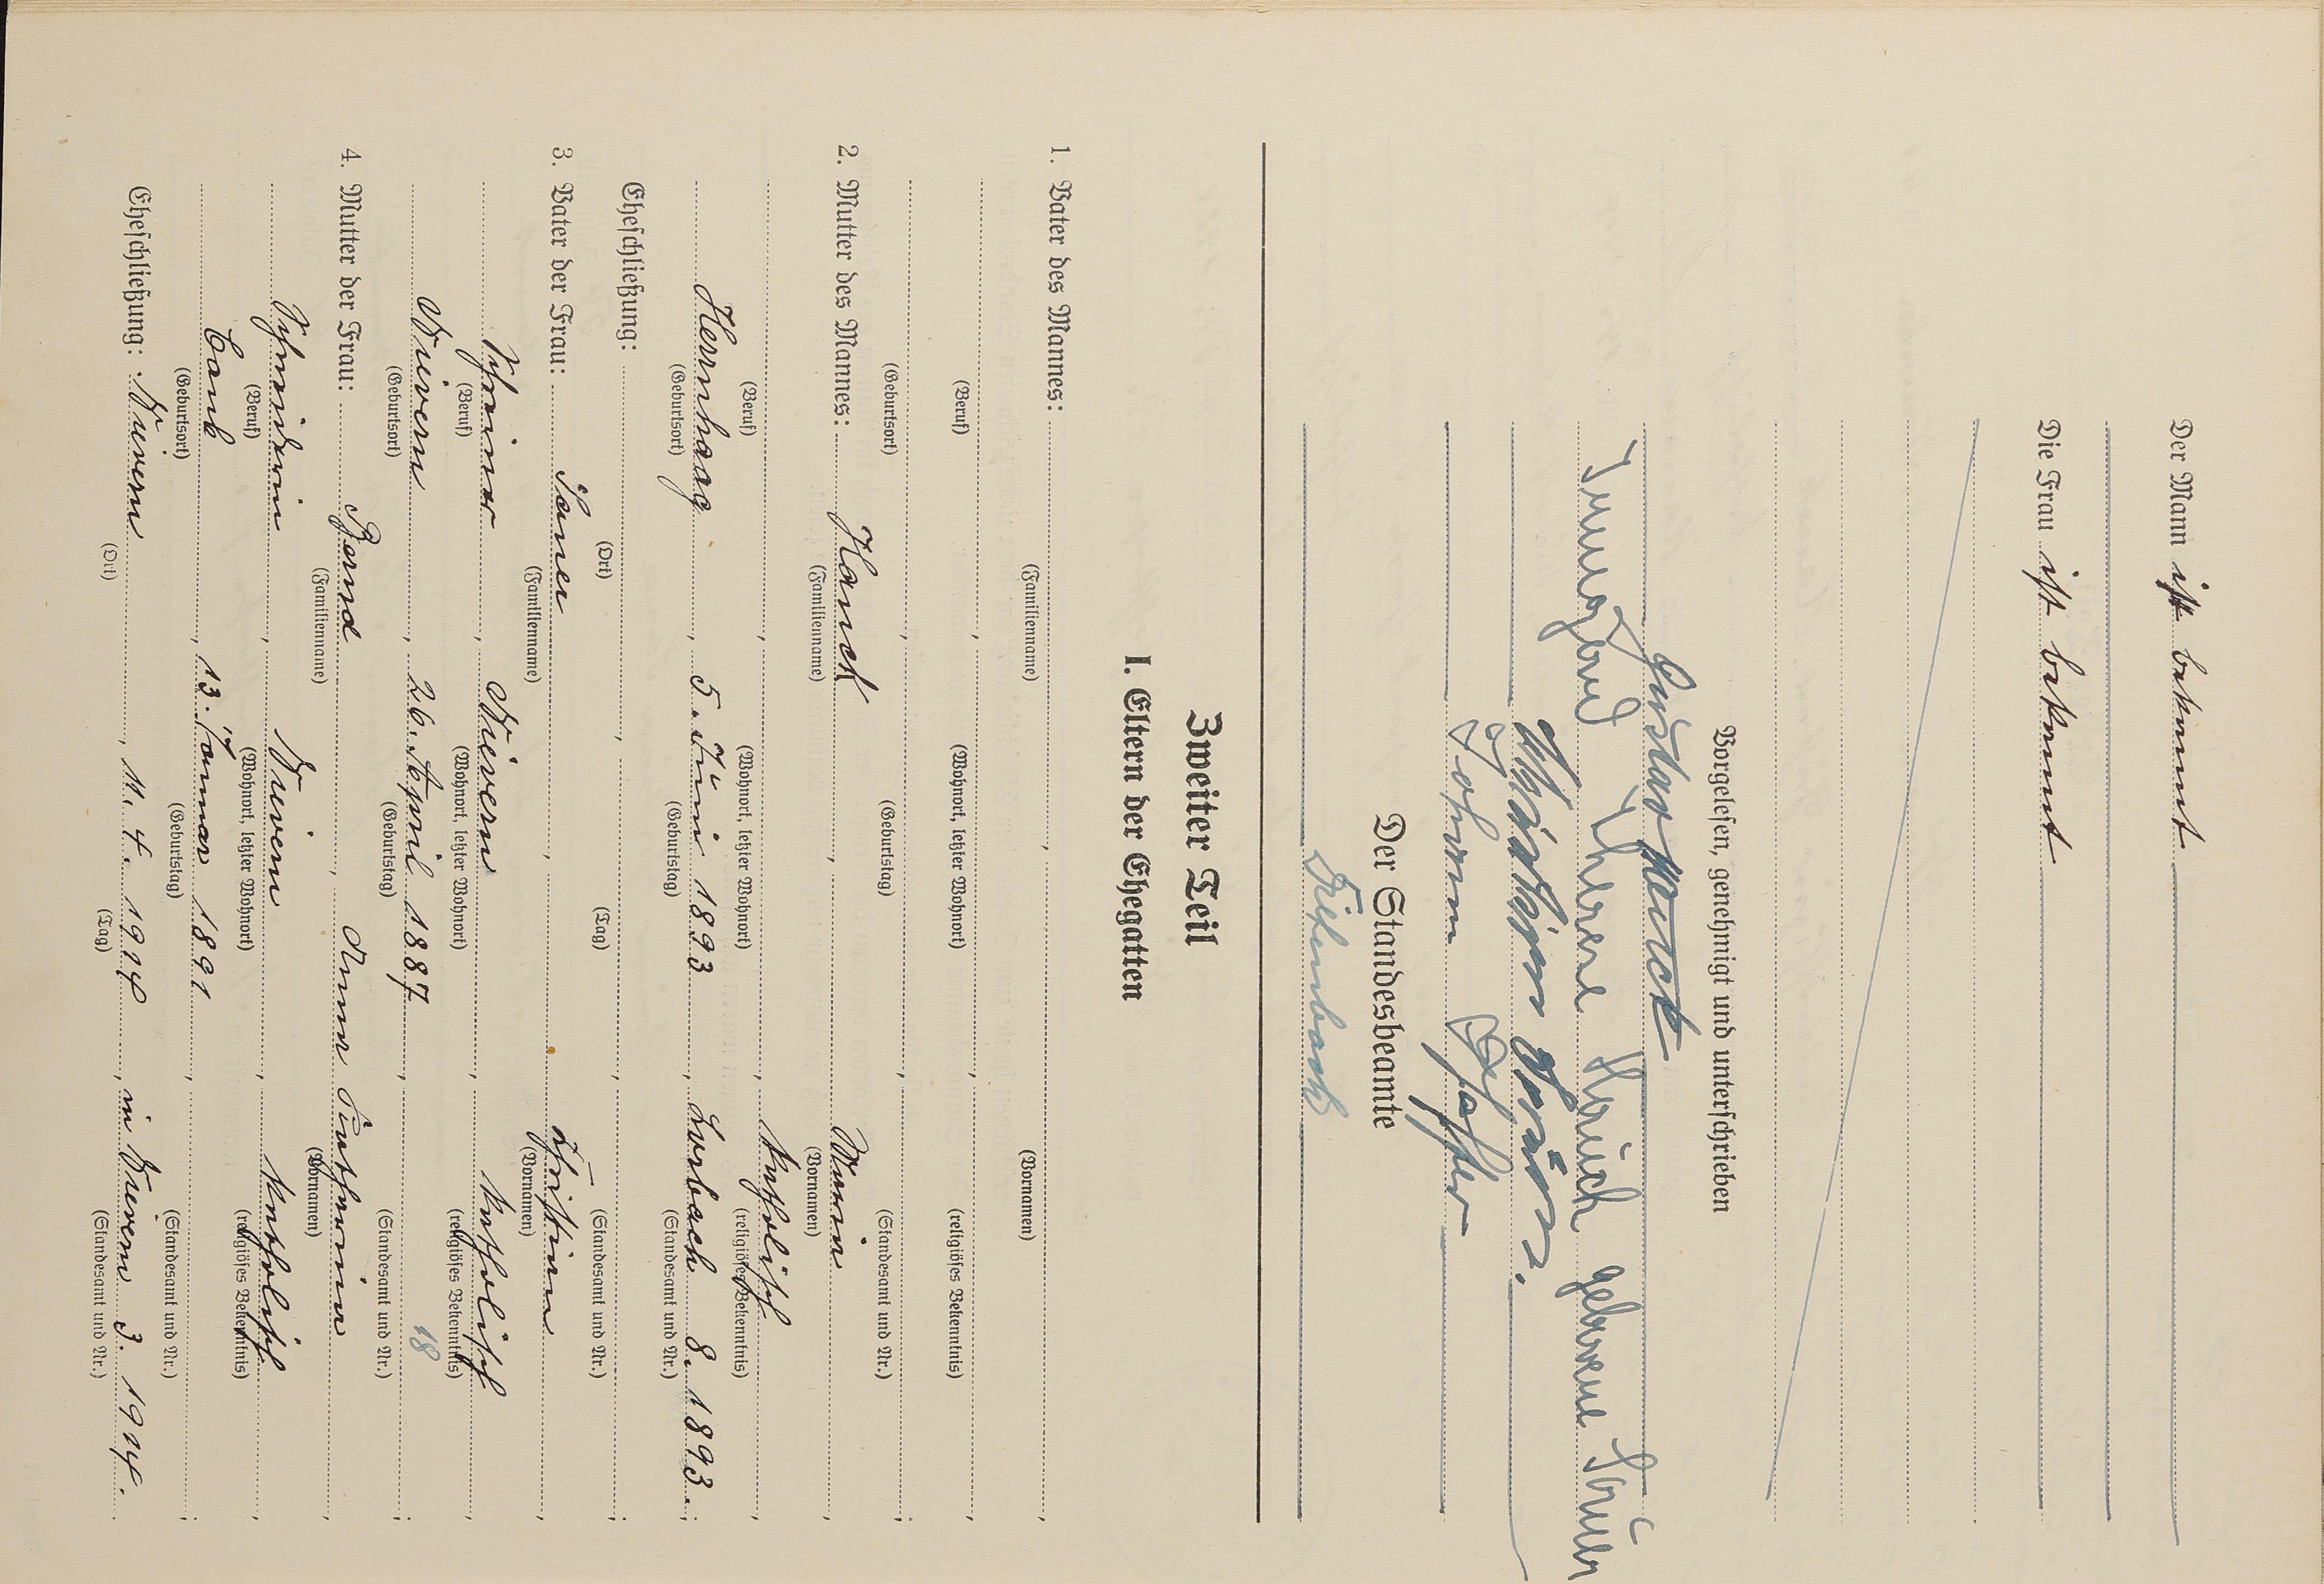 Der Mann ist bekannt
Die Frau ist bekannt
Vorgelesen, genehmigt und unterschrieben
Gustav Hauck
Irmgard Therese Hauck geborene Sauer
Johann Schaffer
Der Standesbeamte
Zweiter Teil
I. Eltern der Ehegatten
1. Vater des Mannes:
(Familienname) (Vornamen)
(Beruf) (Wohnort, letzter Wohnort) (religiöses Bekenntnis)
(Geburtsort) (Geburtstag) (Standesamt und Nr.)
2. Mutter des Mannes: Hauck, Maria
(Familienname) (Vornamen)
katholisch
(Beruf) (Wohnort, letzter Wohnort) (religiöses Bekenntnis)
Herrnhaag, 5. Juni 1893, Lorbach 8. 1893.
(Geburtsort) (Geburtstag) (Standesamt und Nr.)
Eheschließung:
(Ort) (Tag) (Standesamt und Nr.)
3. Vater der Frau: Sauer,
(Familienname) (Vornamen)
Schreiner, Nievern, katholisch
(Beruf) (Wohnort, letzter Wohnort) (religiöses Bekenntnis)
Nievern, 26. April 1887, 18
(Geburtsort) (Geburtstag) (Standesamt und Nr.)
4. Mutter der Frau: Bernd, Anna Katharina
(Familienname) (Vornamen)
Schneiderin, Nievern, katholisch
(Beruf) (Wohnort, letzter Wohnort) (religiöses Bekenntnis)
13. Januar 1891
(Geburtsort) (Geburtstag) (Standesamt und Nr.)
Eheschließung: Nievern, 11. 4. 1914, in Nievern 3. 1914.
(Ort) (Tag) (Standesamt und Nr.)